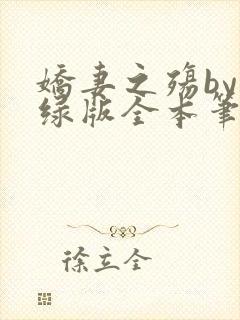 娇妻之殇by
绿版全本笔
徐立全